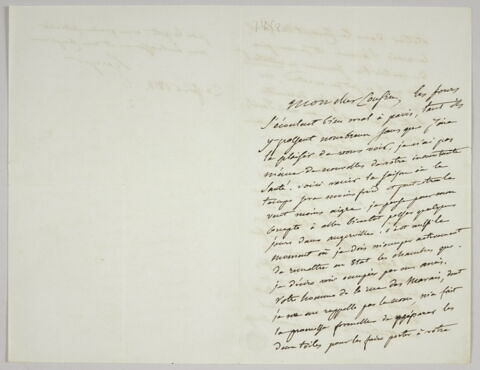 Mon cher Cousin, les jours
s'écoulent bien mal à paris, tant de
s'y passent nombreux sans que j'aie
le plaisir de vous voir, je n'ai pas
même de nouvelles de votre
santé. voici venir la saison où le
temps sera moins froid et peut être le
vent moins aigre. je pense pour mon
compte à aller bientôt passer quelques
jours dans augerville: c'est aussi le
moment où je dois m'occuper activement
de remettre en état les chambres que
je désire voir occupées par mes amis.
Votre homme de la rue des Marais, dont
je ne me rappelle pas le nom, m'a fait
la promesse formelle de préparer les
deux toiles pour les faire porter à votre